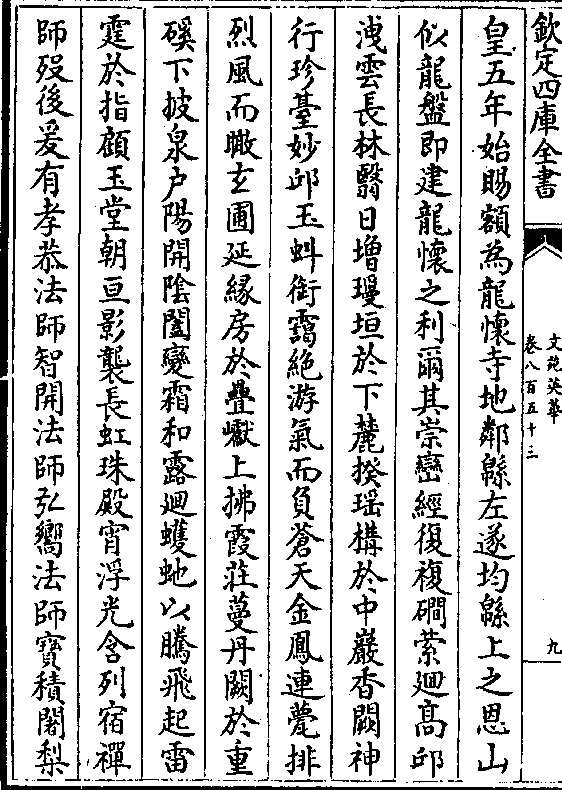 欽定四庫全書
文苑英華
卷八百五十三
九
皇五年始賜額為龍懷寺地鄰緜左遂均緜上之恩山
似龍盤即建龍懷之利爾其崇巒經復複磵縈迴高邱
洩雲長林翳日增璎垣於下麓揆瑶構於中巖香闕神
行珍臺妙邱玉虯銜靄絶游氣而負蒼天金鳳連甍排
烈風而瞰玄圃延緣房於疊巘上拂霞莊蔓丹闕於重
磎下披泉户陽開陰闔變霜和露迴蠖虵以騰飛起雷
霆於指顧玉堂朝亘影襲長虹珠殿宵浮光含列宿禪
師殁後爰有孝恭法師智開法師弘嚮法師寳積闍梨